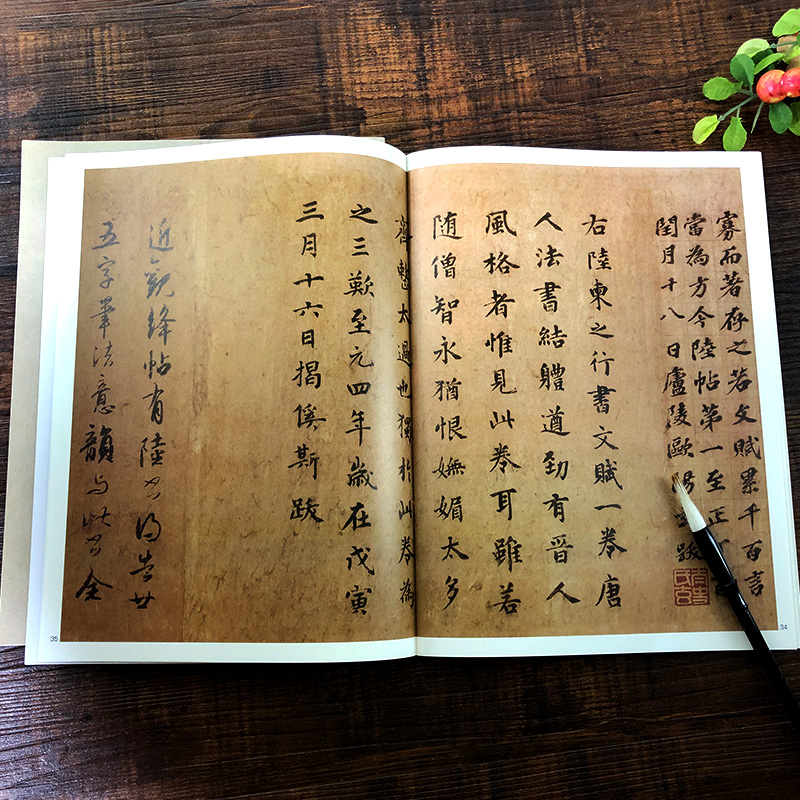 寡而著存之若文賦累千百言
當為方今陸帖第一至正
閏月十八日廬陵歐陽玄跋
右陸柬之行書文賦一卷唐
人法書結軆遒勁有晉人
風格者惟見此卷耳雖若
随僧智永猶恨嫵媚太多
34
齊整太過也獨於此卷為
之三歎至元四年歲在戊寅
三月十六日揭傒斯跋
近觀絳帖有陸公得告廿
五字筆法意韻与此公全
35